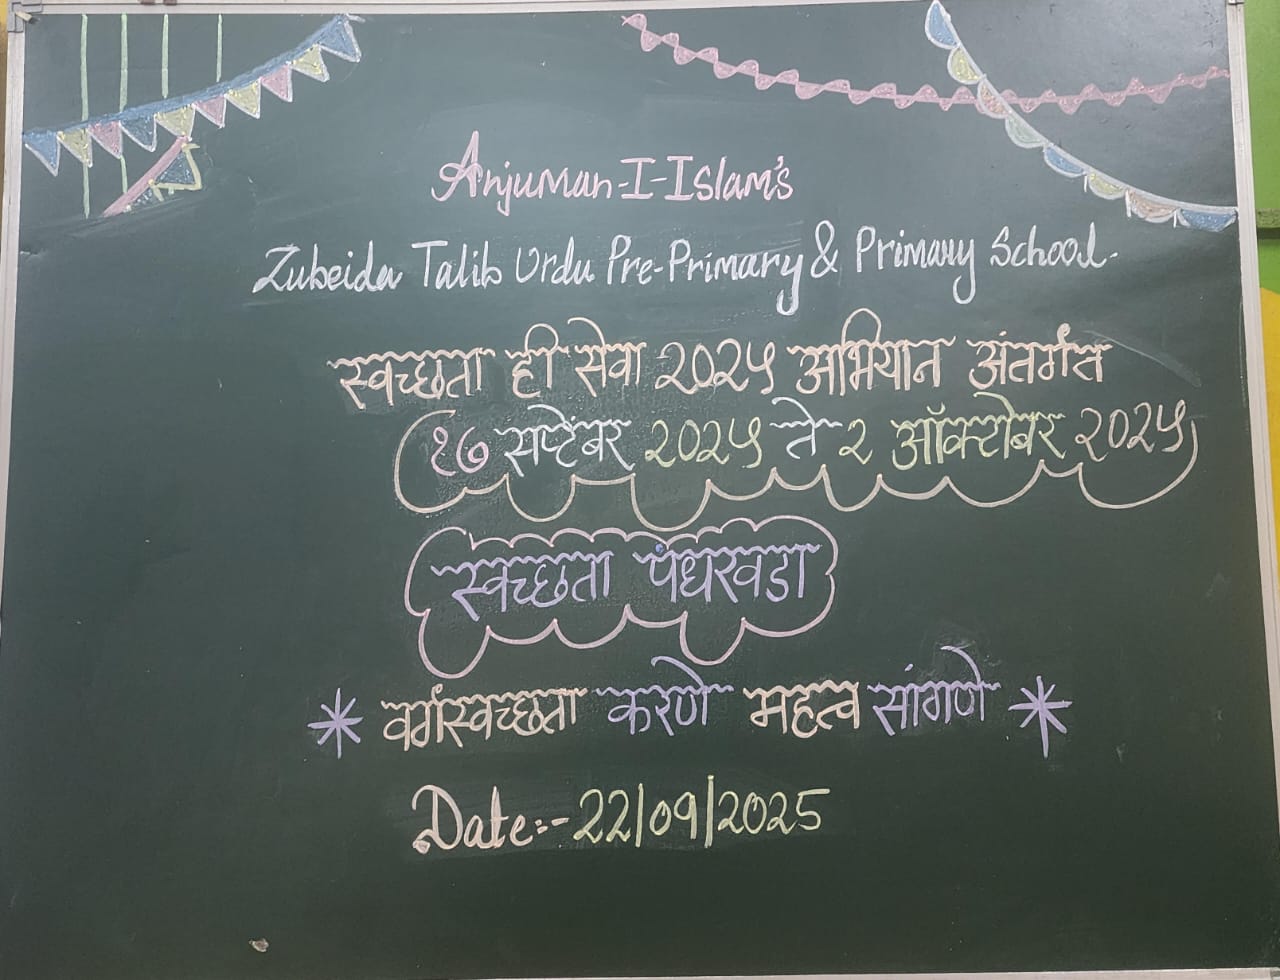 Anjuman-I-Islam's
Zubeida Talib Urdu Pre-Primary & Primary School.
स्वच्छता ही सेवा २०२५ अभियान अंतर्गत
(१७ सप्टेंबर २०२५ ते २ ऑक्टोबर २०२५)
स्वच्छता पंधरवडा
* वर्गस्वच्छता करणे महत्व सांगणे *
Date:- 22/09/2025